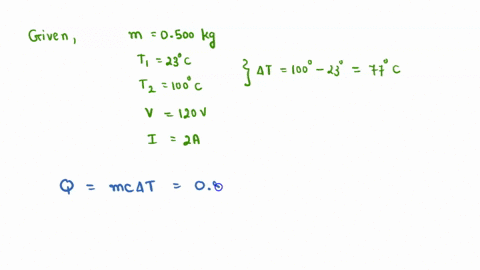 Given, m = 0.500 kg
T₁ = 23°C
T₂ = 100°C
} ΔT = 100° - 23° = 77°C
V = 120V
I = 2A
Q = mcΔT = 0.